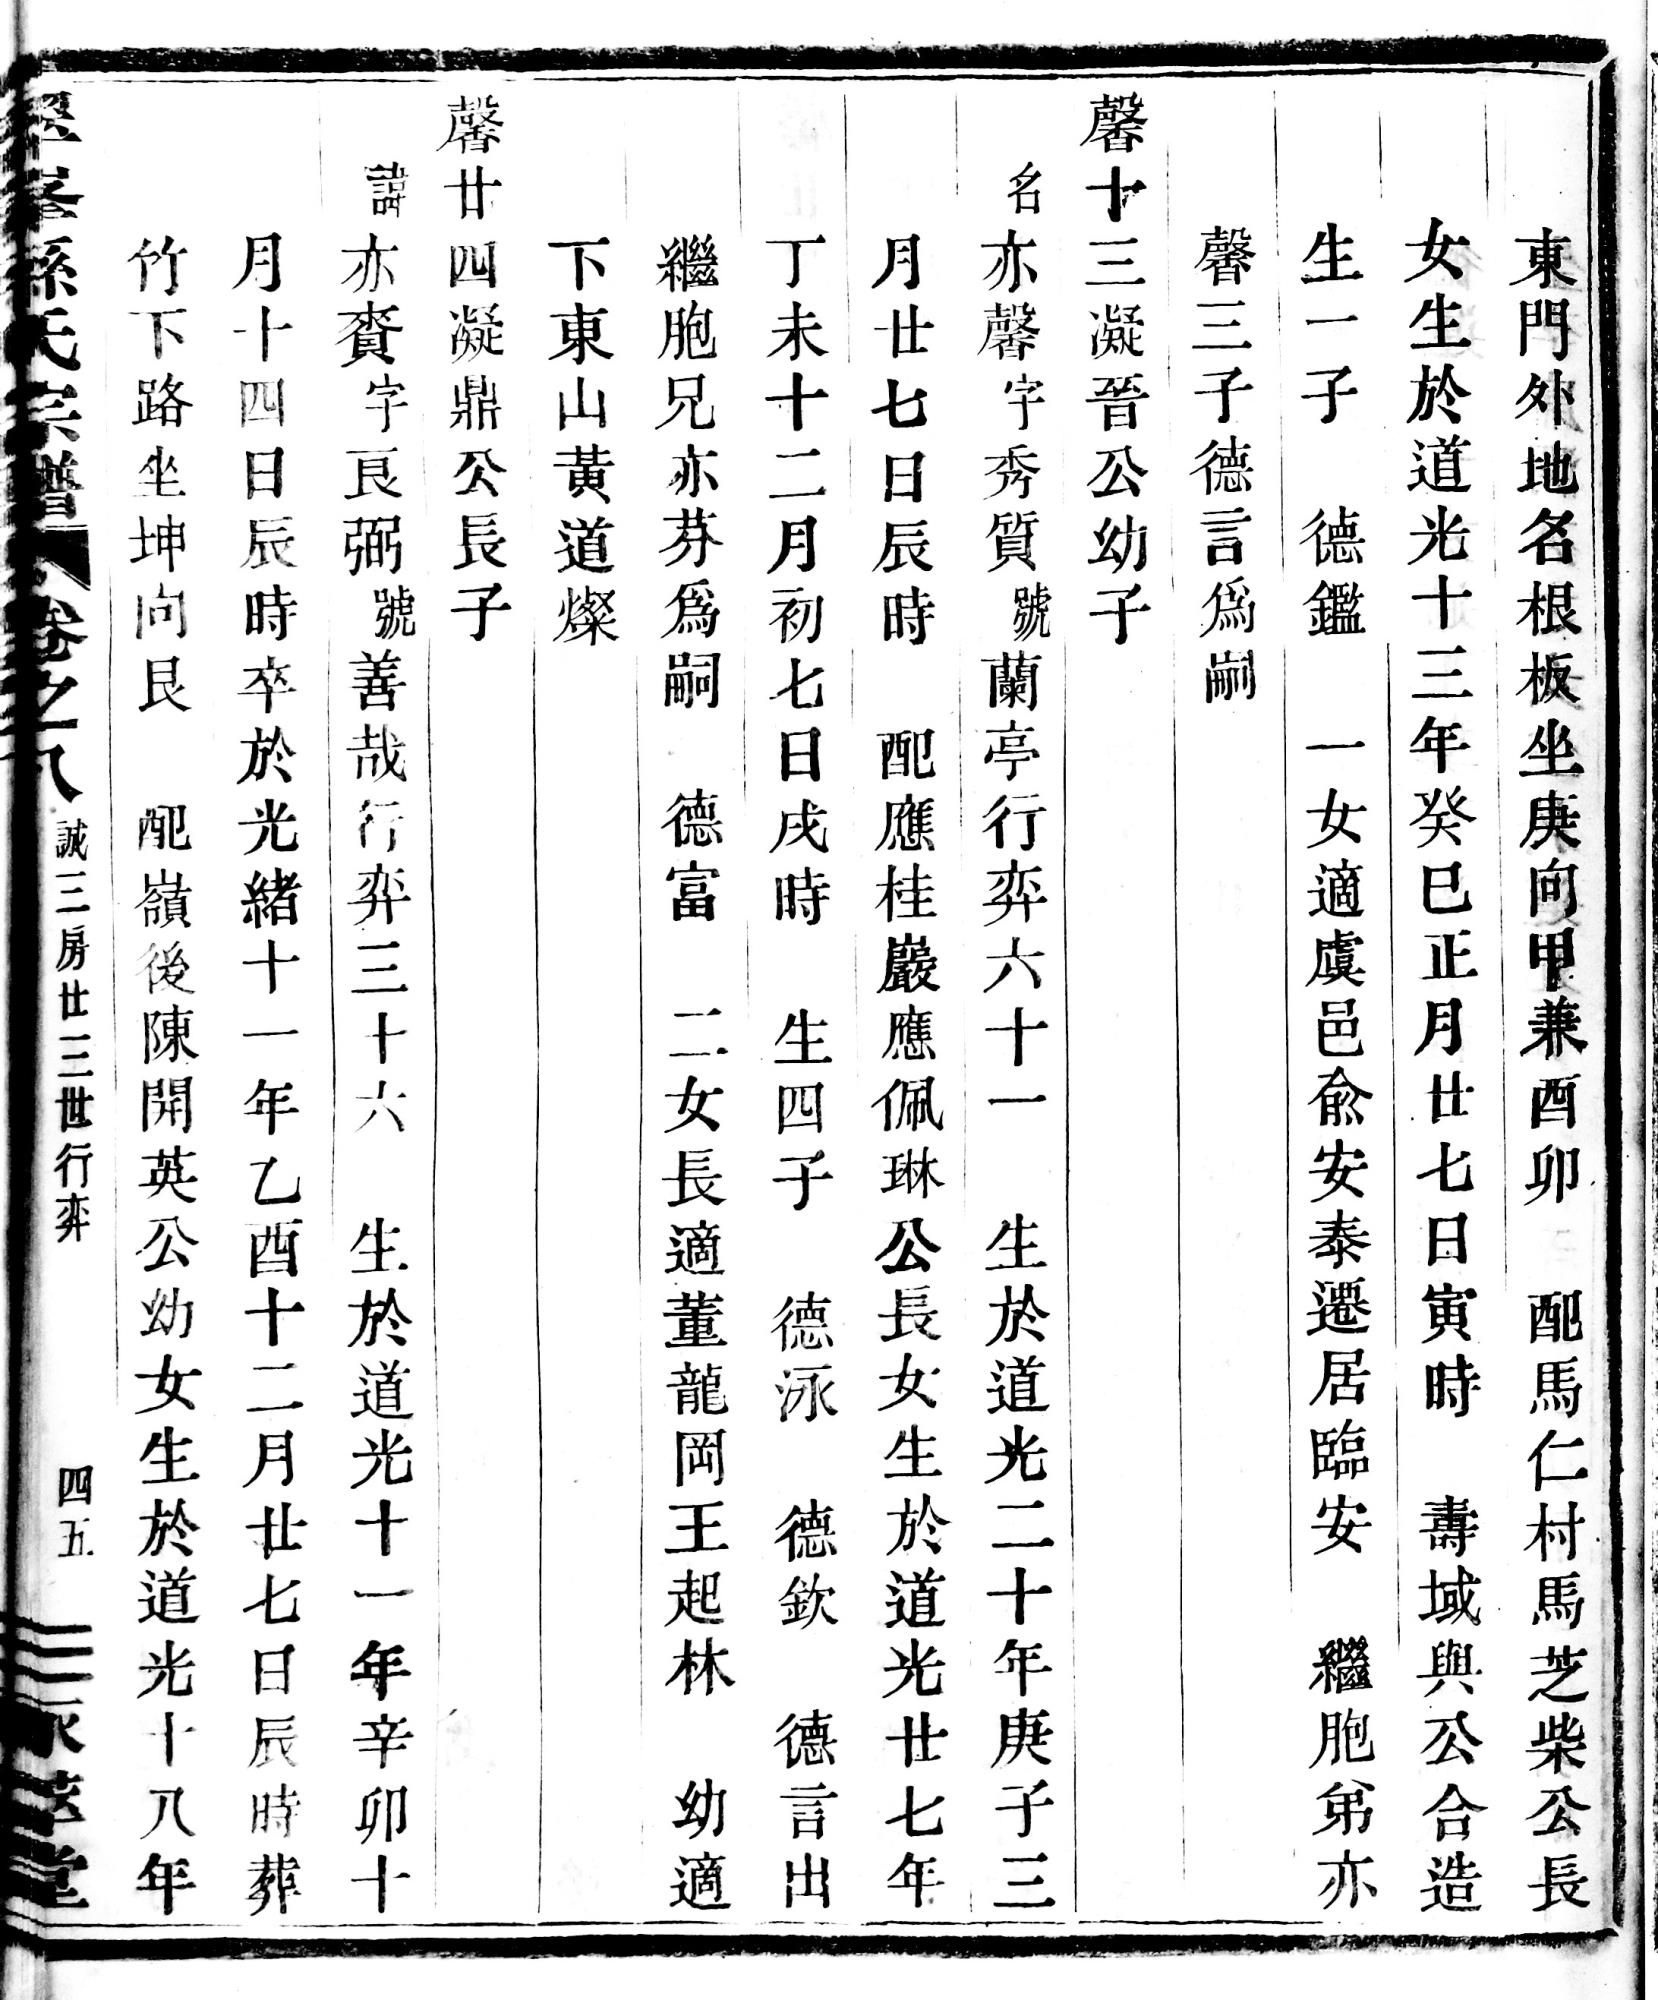 東門外地名根板坐庚向甲兼酉卯　配馬仁村馬芝柴公長
女生於道光十三年癸巳正月廿七日寅時　壽域與公合造
生一子　德鑑　一女適虞邑俞安泰遷居臨安　繼胞弟亦
馨三子德言爲嗣
馨十三凝晉公幼子
名亦馨字秀質號蘭亭行弈六十一　生於道光二十年庚子三
月廿七日辰時　配應桂巖應佩琳公長女生於道光廿七年
丁未十二月初七日戌時　生四子　德泳　德欽　德言出
繼胞兄亦芬爲嗣　德富　二女長適董龍岡王起林　幼適
下東山黃道燦
馨廿四凝鼎公長子
諱亦賚字良弼號善哉行弈三十六　生於道光十一年辛卯十
月十四日辰時卒於光緒十一年乙酉十二月廿七日辰時葬
竹下路坐坤向艮　配嶺後陳開英公幼女生於道光十八年
孫氏宗譜　卷之八　誠三房廿三世行弈　四五　堂